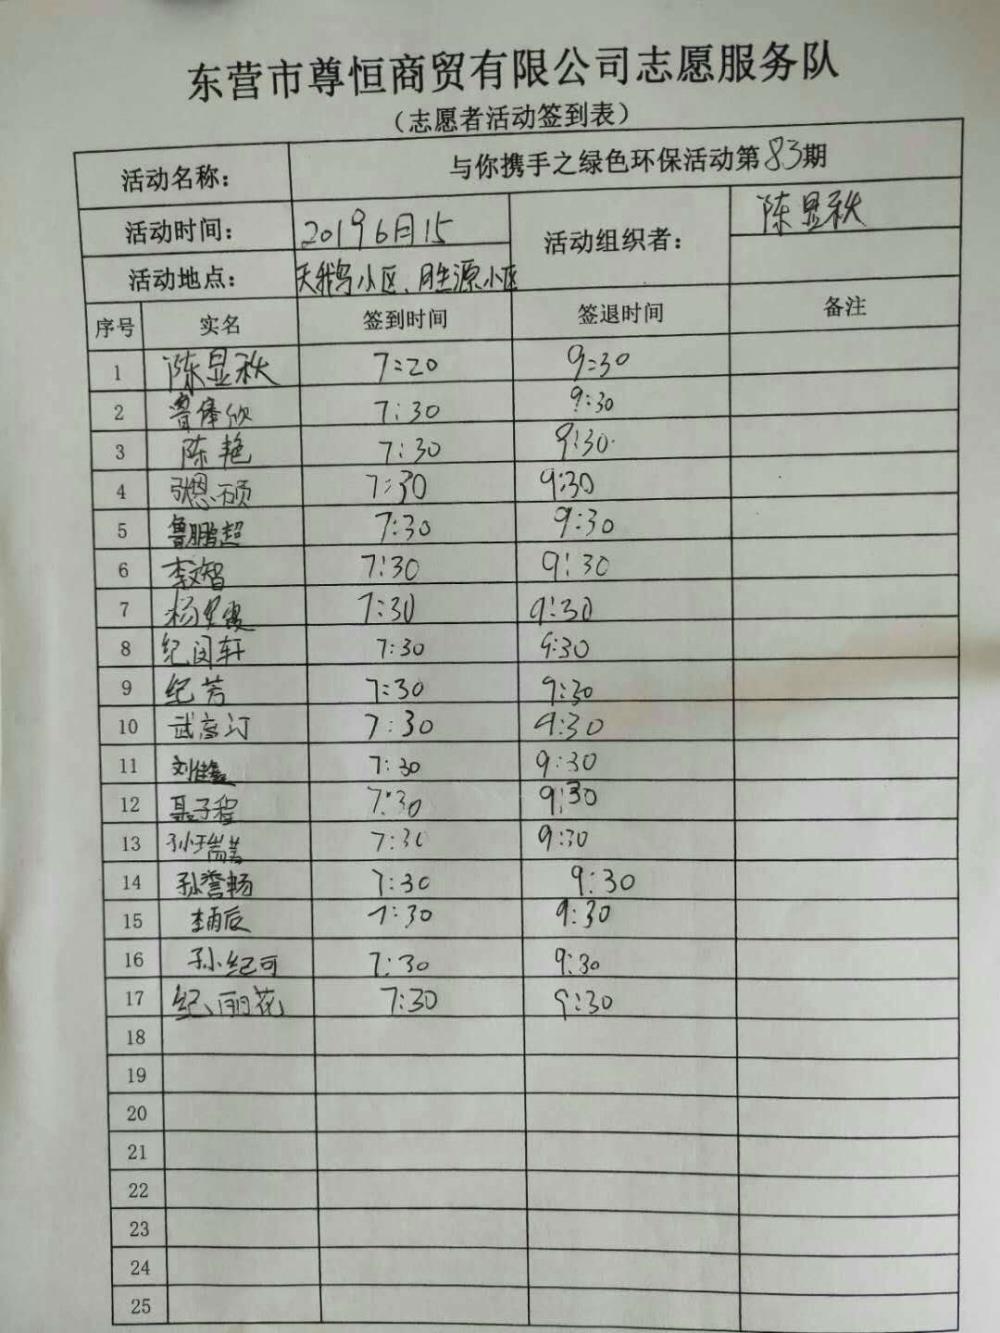 东营市尊恒商贸有限公司志愿服务队
（志愿者活动签到表）
活动名称： 与你携手之绿色环保活动第83期
活动时间： 2019 6月15 活动组织者： 陈显秋
活动地点： 天鹅小区、胜源小区
序号 实名 签到时间 签退时间 备注
1 陈显秋 7:20 9:30
2 7:30 9:30
3 陈艳 7:30 9:30
4 张恩硕 7:30 9:30
5 鲁鹏超 7:30 9:30
6 李文智 7:30 9:30
7 杨 霞 7:30 9:30
8 纪闵轩 7:30 9:30
9 纪芳 7:30 9:30
10 武彦汀 7:30 9:30
11 刘佳鑫 7:30 9:30
12 聂子程 7:30 9:30
13 孙瑞 7:30 9:30
14 孙誉畅 7:30 9:30
15 7:30 9:30
16 孙纪可 7:30 9:30
17 纪丽花 7:30 9:30
18
19
20
21
22
23
24
25